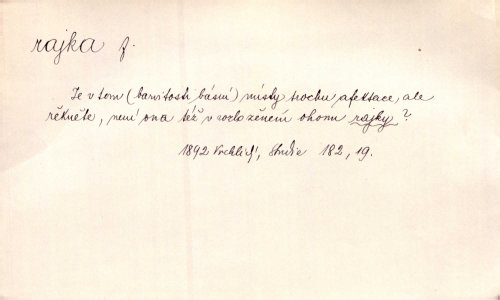 rajka f.
Je v tom (barvitosti básní) místy trochu afektace, ale
řekněte, není ona též v rozložením ohonu rajky?
1892 Vrchlický, Studie 182, 19.